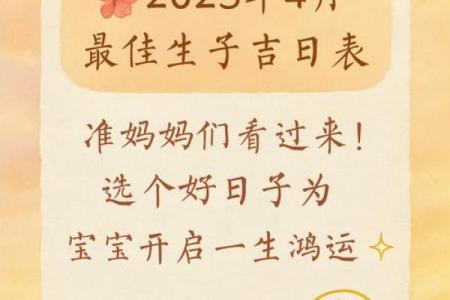 2025年4月
最佳生子吉日表
准妈妈们看过来！
选个好日子为
宝宝开启一生鸿运